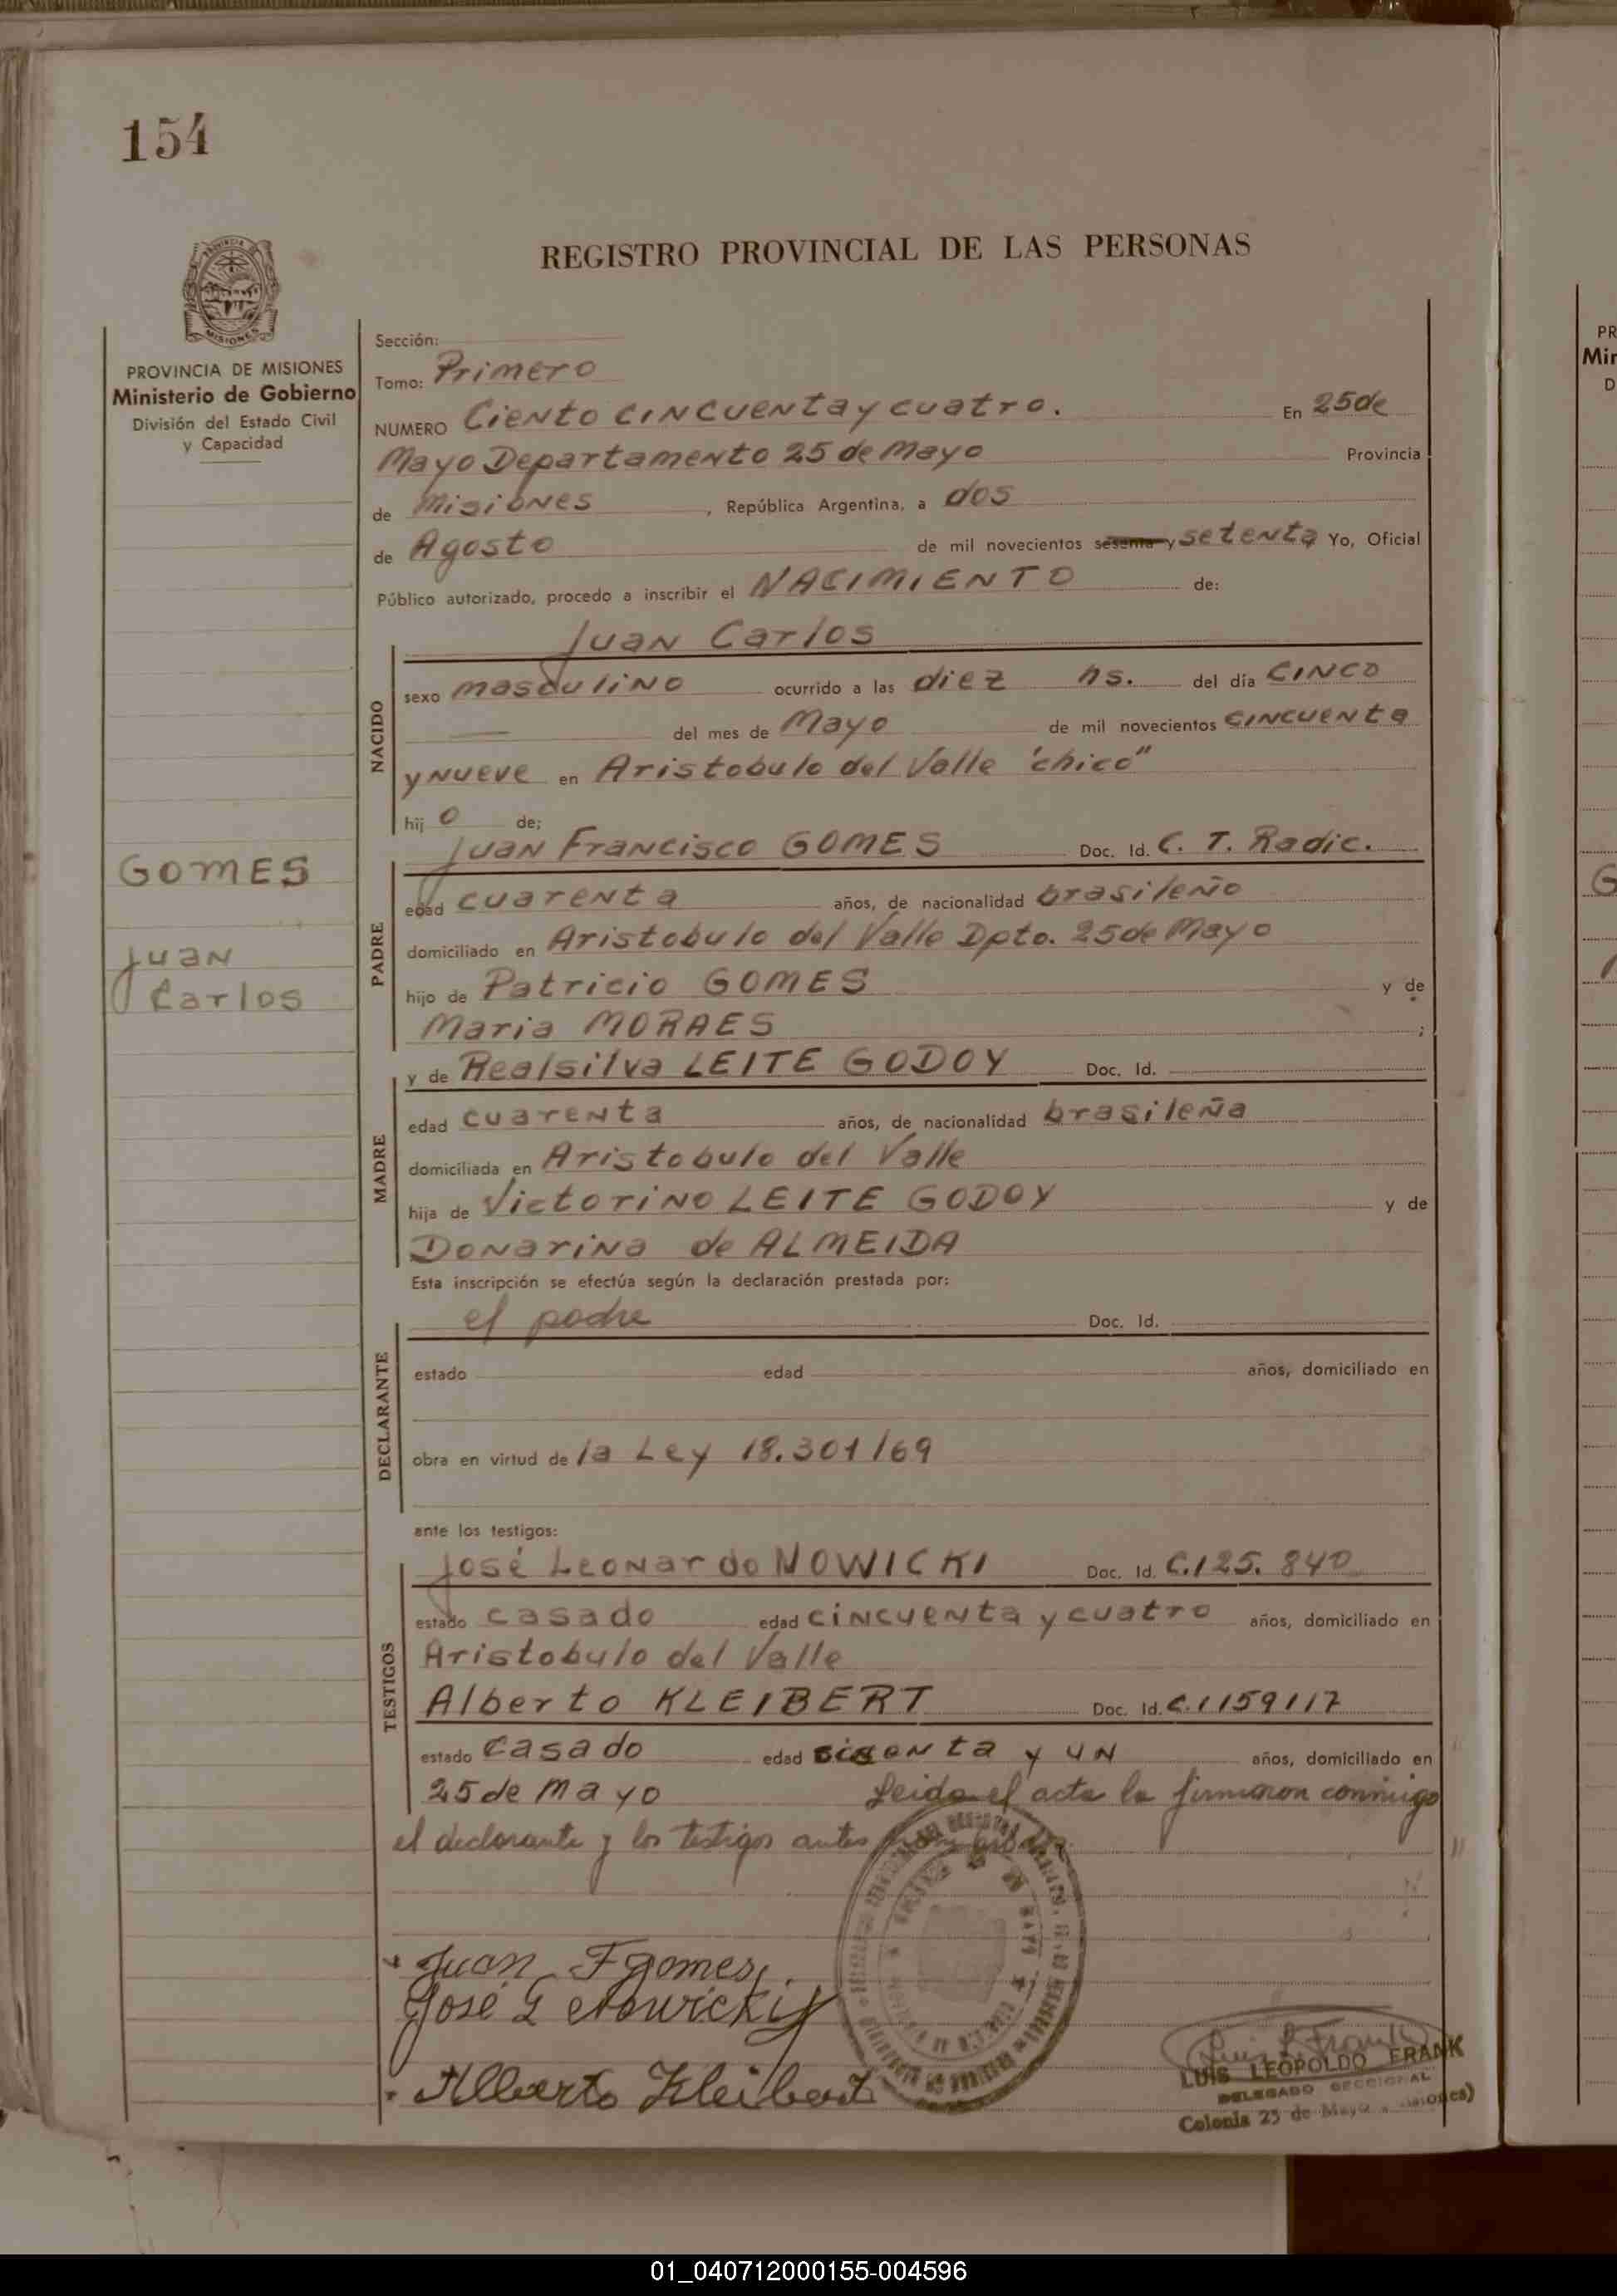 154
REGISTRO PROVINCIAL DE LAS PERSONAS
MISIONES
PROVINCIA DE MISIONES
Ministerio de Gobierno
División del Estado Civil
y Capacidad
GOMES
Juan
Carlos
Sección:
Tomo: Primero
NUMERO Ciento cincuenta y cuatro. En 25 de
Mayo Departamento 25 de Mayo Provincia
de Misiones , República Argentina, a dos
de Agosto de mil novecientos sesenta y setenta Yo, Oficial
Público autorizado, procedo a inscribir el NACIMIENTO de:
Juan Carlos
NACIDO
sexo masculino ocurrido a las diez hs. del día CINCO
del mes de Mayo de mil novecientos cincuenta
y nueve en Aristobulo del Valle "chico"
hij o de;
Juan Francisco GOMES Doc. Id. C. T. Radic.
PADRE
edad cuarenta años, de nacionalidad brasileño
domiciliado en Aristobulo del Valle Dpto. 25 de Mayo
hijo de Patricio GOMES y de
Maria MORAES ;
y de Realsilva LEITE GODOY Doc. Id.
MADRE
edad cuarenta años, de nacionalidad brasileña
domiciliada en Aristobulo del Valle
hija de Victorino LEITE GODOY y de
Donarina de ALMEIDA
Esta inscripción se efectúa según la declaración prestada por:
el padre Doc. Id.
DECLARANTE
estado edad años, domiciliado en
obra en virtud de la Ley 18.301/69
ante los testigos:
José Leonardo NOWICKI Doc. Id. C.I 25.840
TESTIGOS
estado casado edad cincuenta y cuatro años, domiciliado en
Aristobulo del Valle
Alberto KLEIBERT Doc. Id. C.I 159117
estado casado edad y un años, domiciliado en
25 de Mayo Leida el acta la firmaron conmigo
el declarante y los testigos antes
Juan F gomes
José L Nowicki
Alberto Kleibert
LUIS LEOPOLDO FRANK
DELEGADO SECCIONAL
Colonia 25 de Mayo (Misiones)
01_040712000155-004596